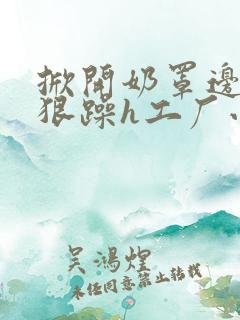 掀开奶罩边
狠躁h工厂、
吴鸿煌
未经同意禁止转载